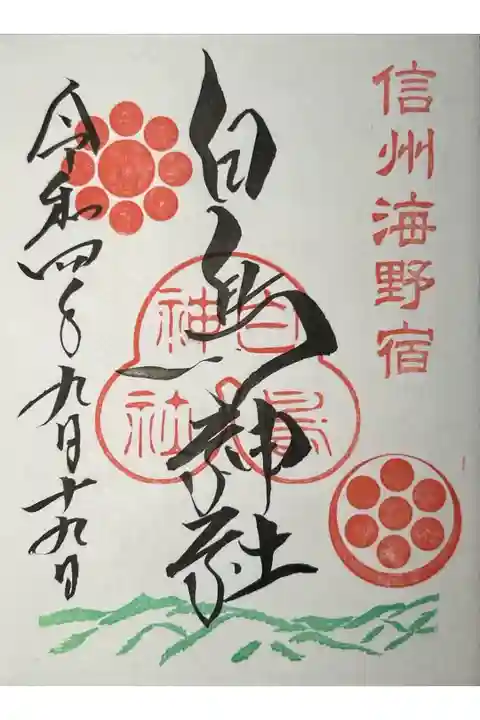 信州海野宿
白鳥神社
白鳥
神社
令和四年九月十九日